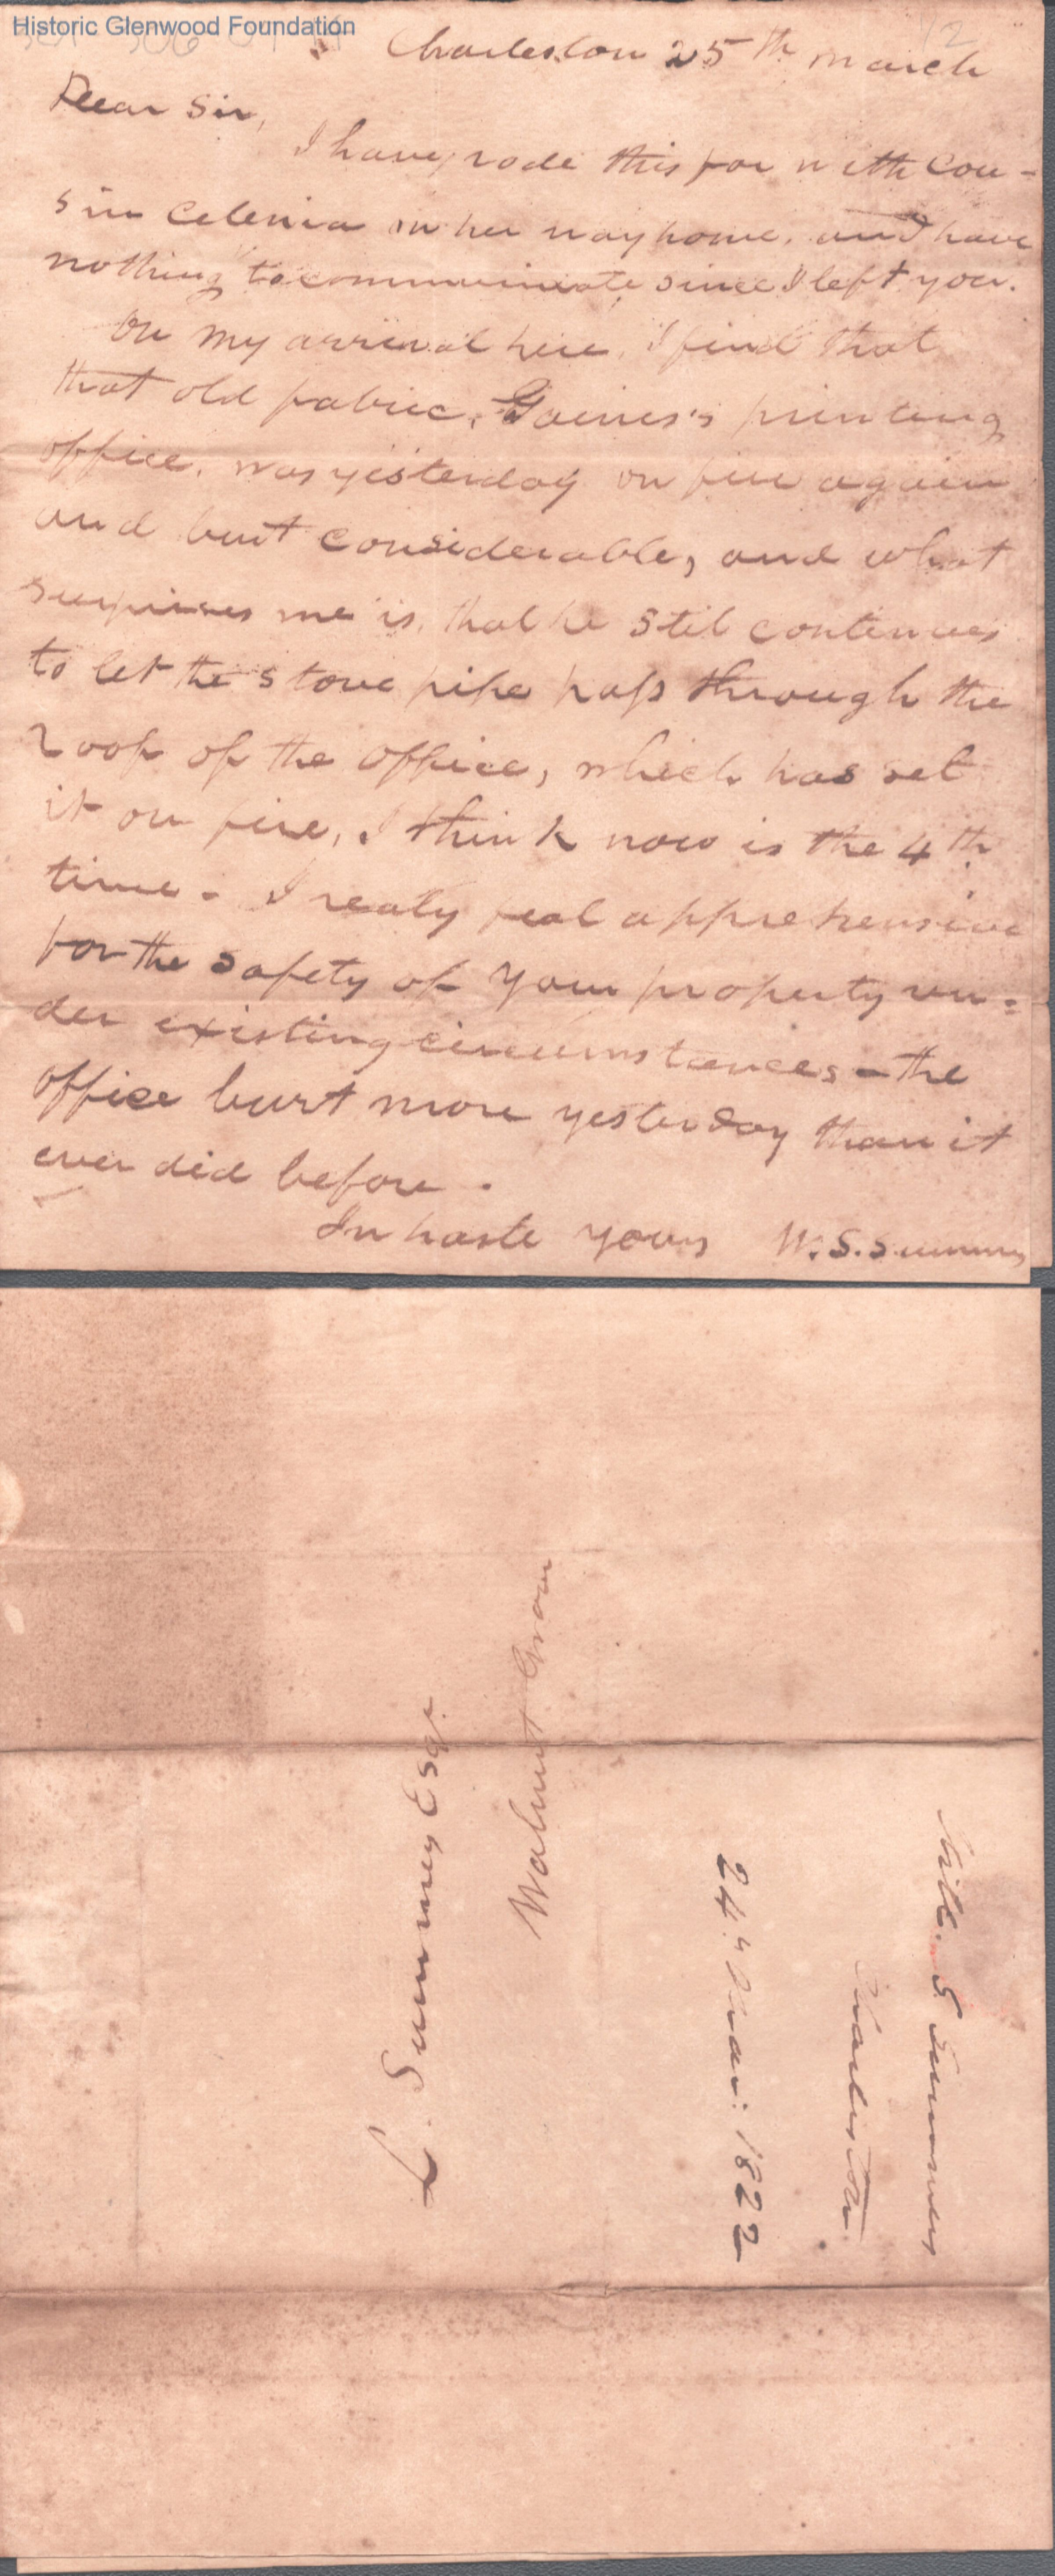 Historic Glenwood Foundation
Charleston 25th march
Dear Sir,
I have rode this far with Cou-
sin Celenia on her way home, and have
nothing to communicate since I left you.
On my arrival here, I find that
that old fabric, Gaines's printing
office, was yesterday on fire again
and burt considerable, and what
surprises me is, that he stil continues
to let the stove pipe pass through the
roof of the office, which has set
it on fire, I think now is the 4th
time - I realy feal apprehensive
for the safety of your property un=
der existing circumstances - the
office burt more yesterday than it
ever did before.
In haste yours W. S. Summers
L. Summers Esqr.
Walnut Grove
Will. S Summers
Charleston.
24th Mar: 1822